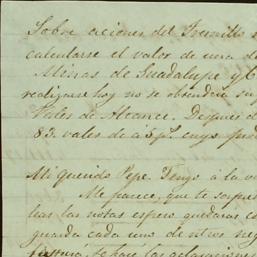 Sobre acciones del Fresnillo
calcularse el valor de una
Minas de Guadalupe y
realizase hoy no se obtendria su
Vales de Alcance. Despues de
83. vales de a 5 p.s cuyo
Mi querido Pepe. Tengo á la
Me parece, que te
las notas espero quedaras
guarda cada uno de otros neg
te hare las aclaraciones